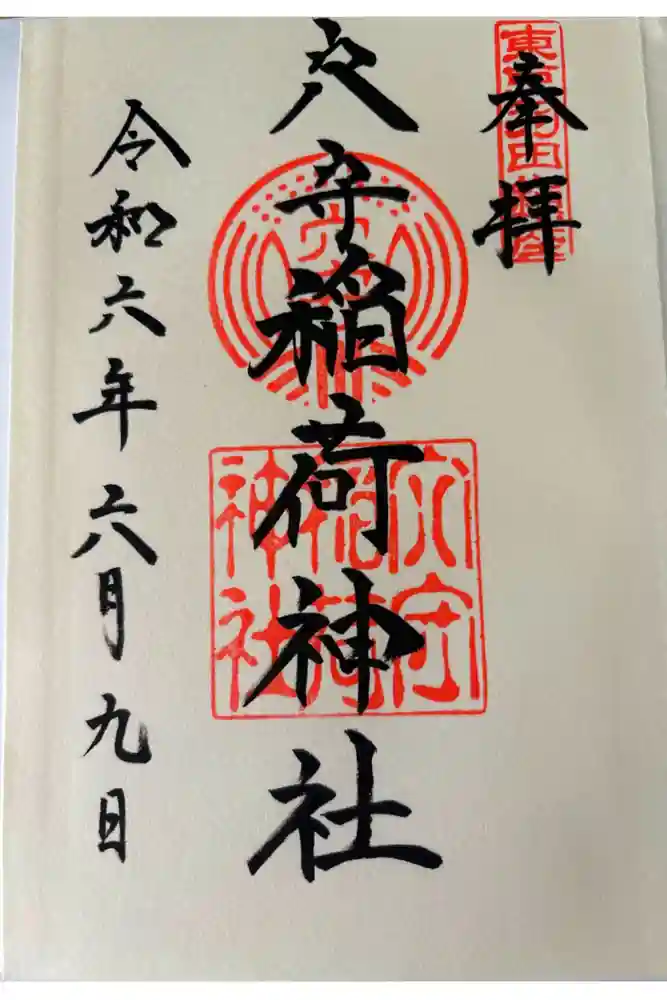 東京羽田鎮座
奉拝
穴守稲荷神社
穴守
稲荷
神社
令和六年六月九日